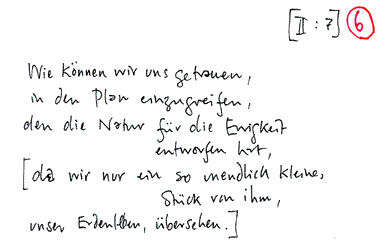 [II : 7] 6
Wie können wir uns getrauen,
in den Plan einzugreifen,
den die Natur für die Ewigkeit
entworfen hat,
[da wir nur ein so unendlich kleines
Stück von ihm,
unser Erdenleben, übersehen.]